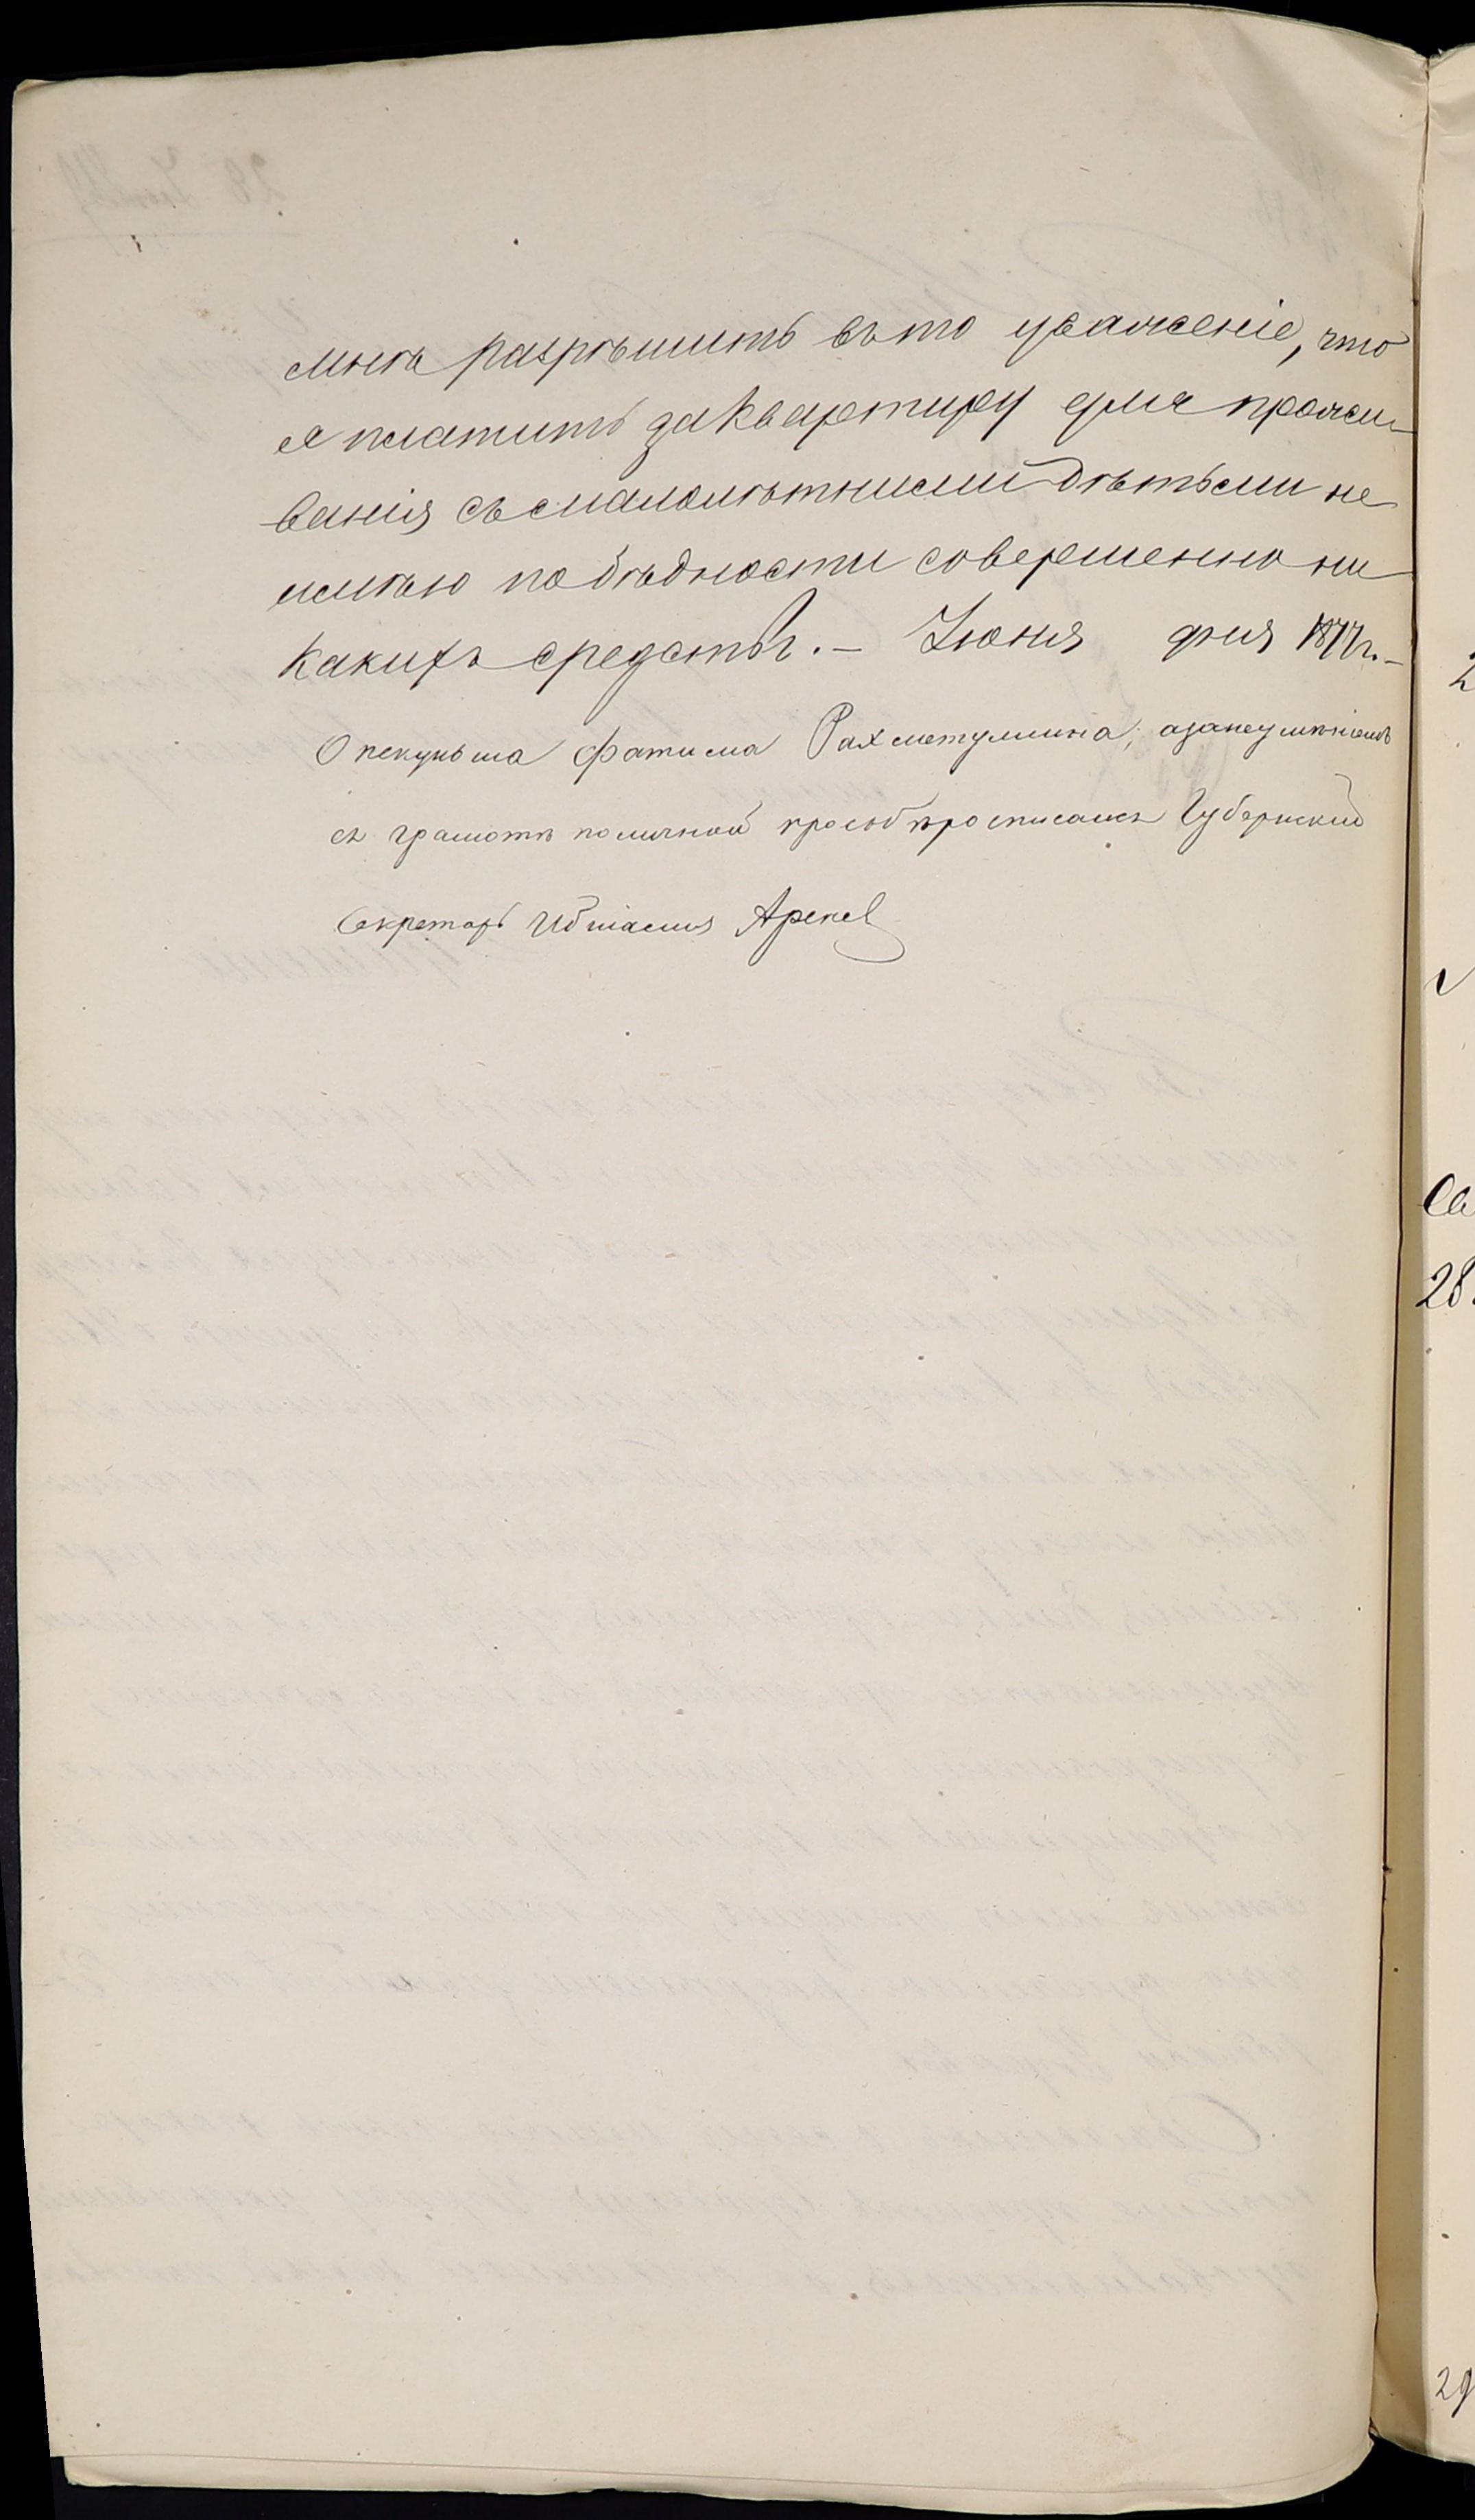 мнѣ разрѣшить въ то уваженіе, что
я платить за квартиру для прожи-
ванія съ малолѣтними дѣтьми не
имѣю по бѣдности совершенно ни
какихъ средствъ. – Іюня дня 1877 г. –
Опекунша Фатима Рахметуллина, а за неумѣніемъ
ея грамотѣ по личной просьбѣ росписался Губернский
Секретарь
28.